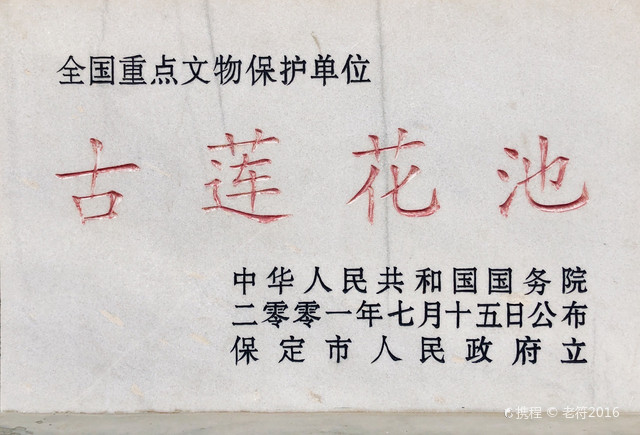 全国重点文物保护单位
古莲花池
中华人民共和国国务院
二零零一年七月十五日公布
保定市人民政府立
携程 © 老符2016